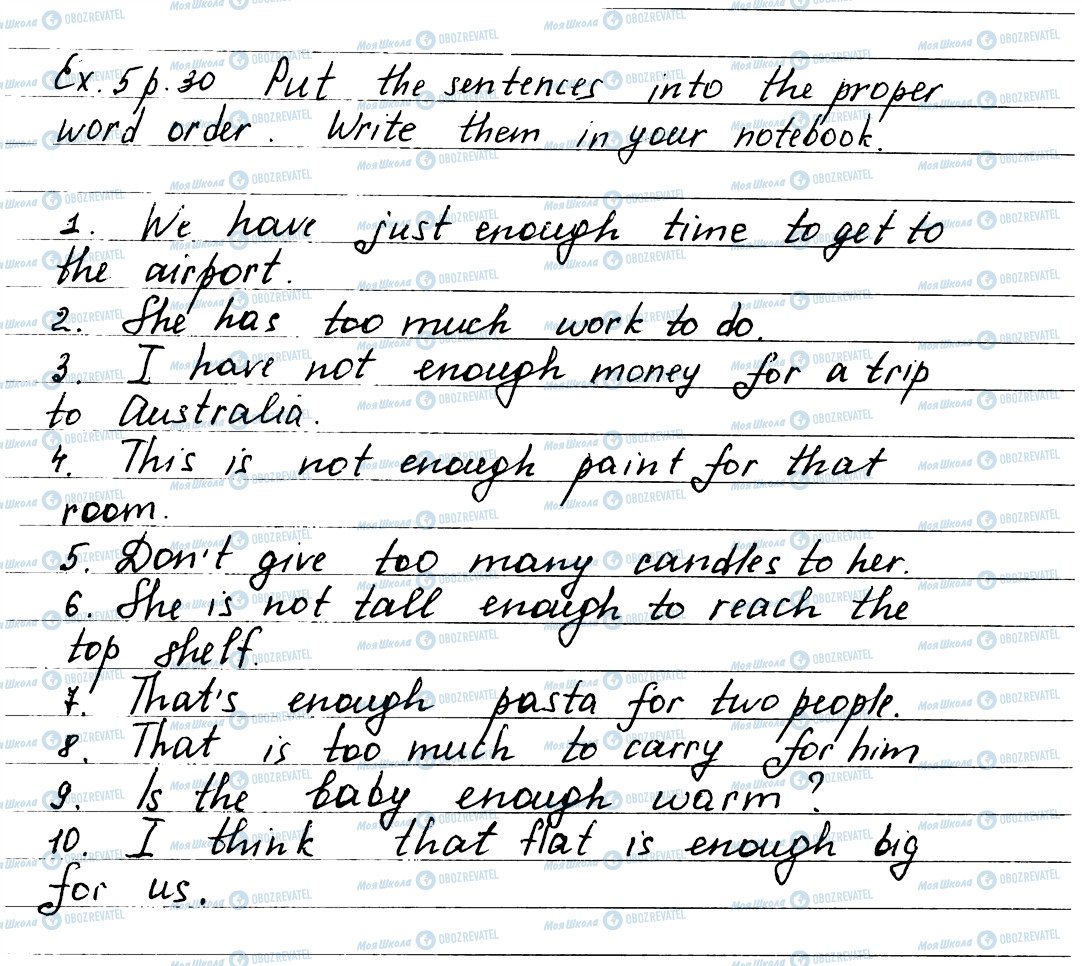 Ex. 5 p. 30 Put the sentences into the proper
word order. Write them in your notebook.
1. We have just enough time to get to
the airport.
2. She has too much work to do.
3. I have not enough money for a trip
to Australia.
4. This is not enough paint for that
room.
5. Don't give too many candles to her.
6. She is not tall enough to reach the
top shelf.
7. That's enough pasta for two people.
8. That is too much to carry for him
9. Is the baby enough warm?
10. I think that flat is enough big
for us.